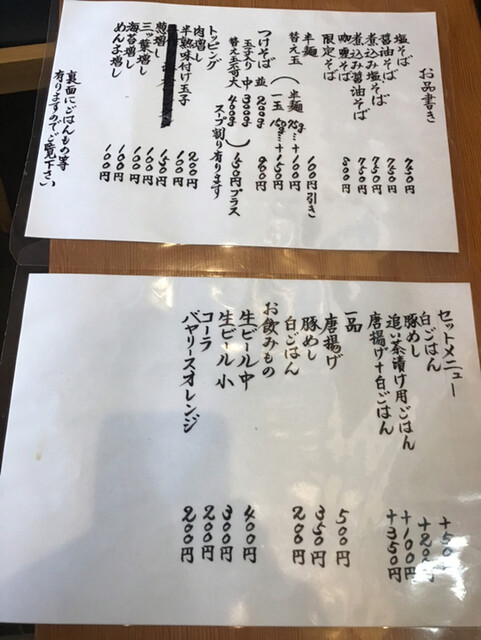 お品書き
塩そば 750円
醤油そば 750円
煮込み塩そば 750円
煮込み醤油そば 750円
咖喱そば 800円
限定そば
半麺 100円引き
替え玉（半麺 75g…+100円
一玉 150g…+150円
つけそば 並 200g 900円
玉子入り 中 300g
大 400g 150円プラス
スープ割り有ります
トッピング
肉増し 200円
半熟味付け玉子 100円
葱増し 150円
三ッ葉増し 100円
海苔増し 100円
めんま増し 100円
裏面にごはんもの等
有りますのでご覧下さい
セットメニュー
白ごはん +50
豚めし +200円
追い茶漬け用ごはん +100円
唐揚げ+白ごはん +350円
一品
唐揚げ 500円
豚めし 350円
白ごはん 200円
お飲みもの
生ビール中 400円
生ビール小 300円
コーラ 200円
バヤリースオレンジ 200円